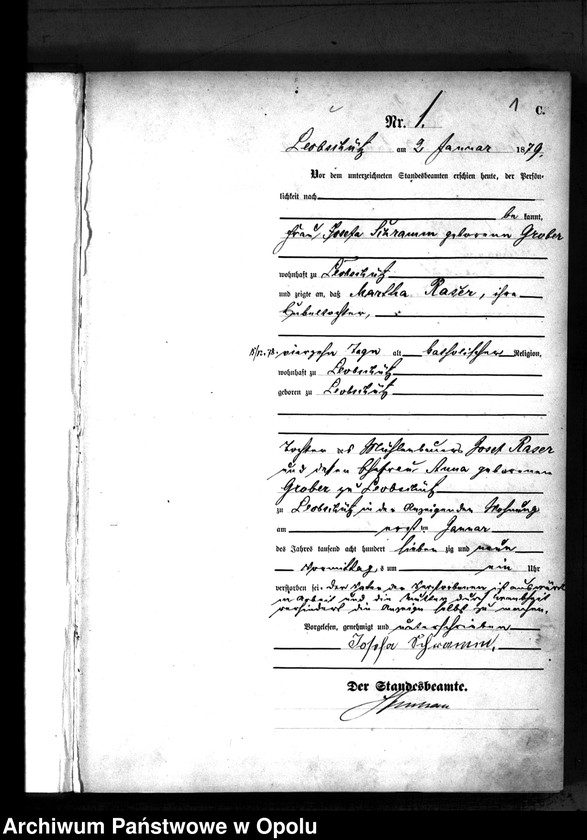 1 C.
Nr. 1.
Leobschütz am 2 Januar 1879.
Vor dem unterzeichneten Standesbeamten erschien heute, der Persön-
lichkeit nach
be kannt,
Frau Josefa Schramm geborene Grober
wohnhaft zu Leobschütz
und zeigte an, daß Martha Raser, ihre
alt katholischer Religion,
vierzehn Tage
wohnhaft zu Leobschütz
geboren zu Leobschütz
Tochter des Mühlenbauers Josef Raser
und dessen Ehefrau Anna geborenen
Grober zu Leobschütz
zu Leobschütz in der Anzeigenden Wohnung
am ersten Januar
des Jahres tausend acht hundert sieben zig und neun
Vormittags um ein Uhr
verstorben sei. der Vater der Verstorbenen ist auswärts
in Arbeit und die Mutter durch Krankheit
verhindert die Anzeige selbst zu machen.
Vorgelesen, genehmigt und unterschrieben
Josefa Schramm.
Der Standesbeamte.
Archiwum Państwowe w Opolu